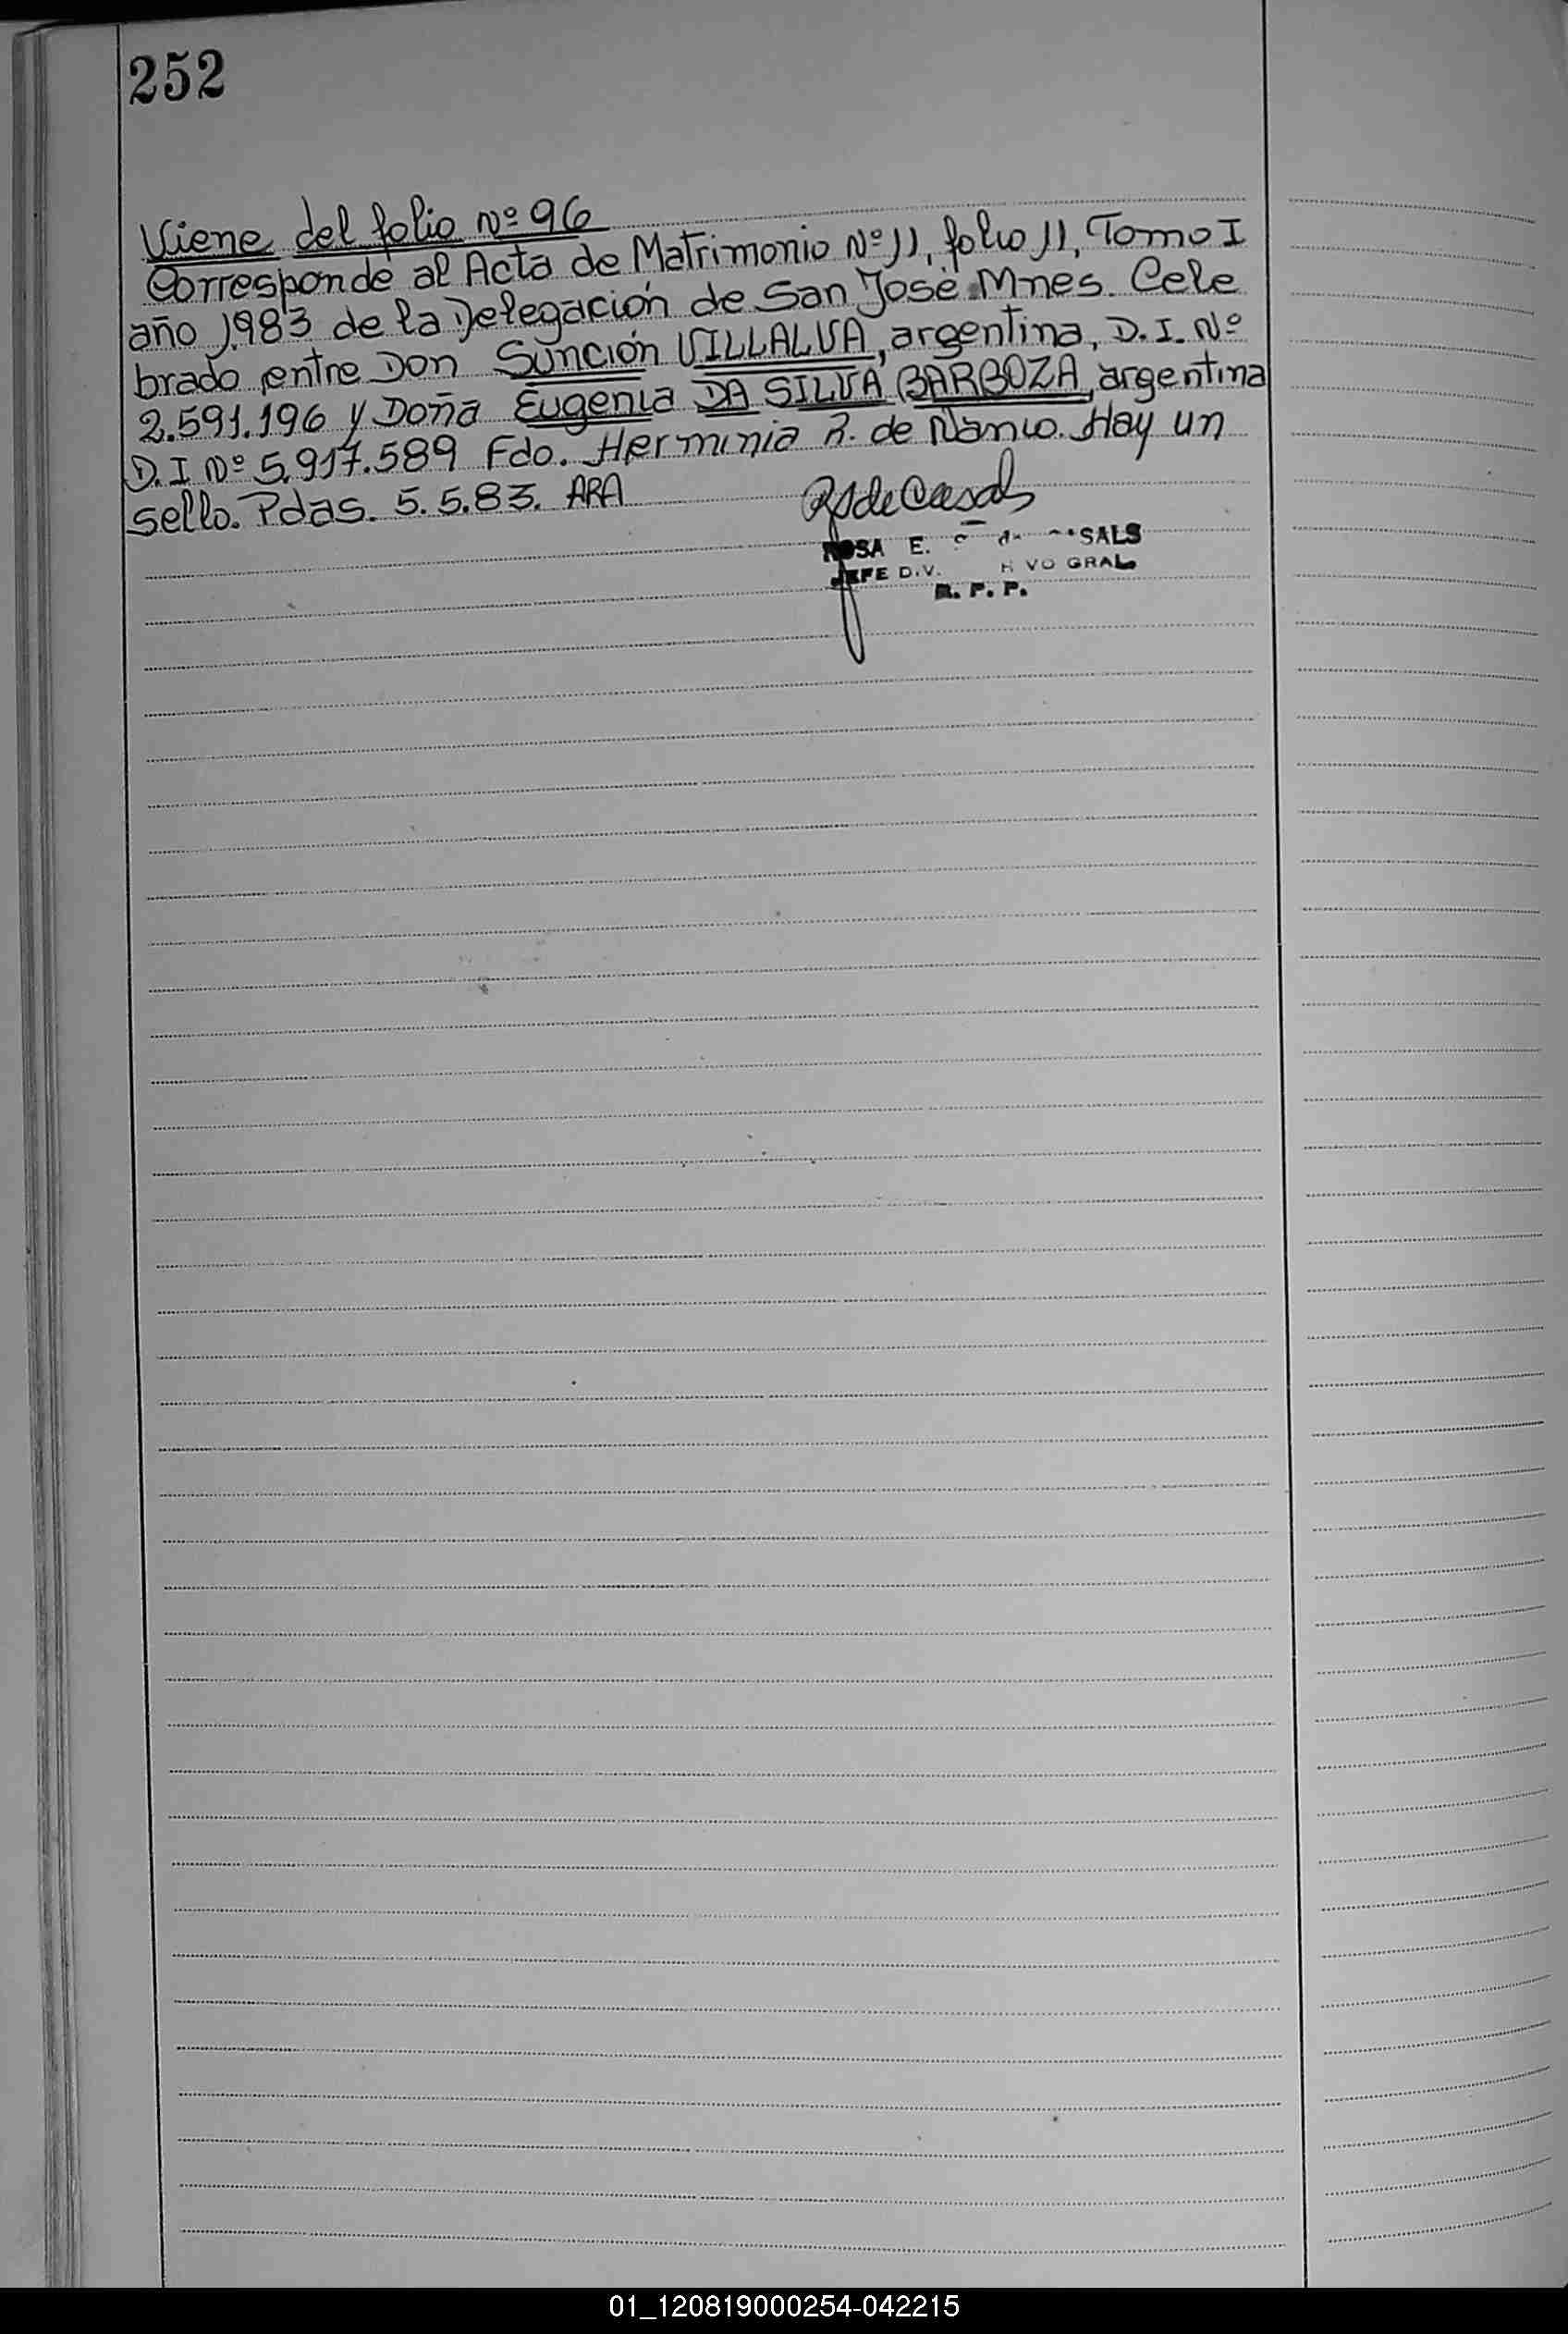 252
Viene del folio Nº 96
Corresponde al Acta de Matrimonio Nº 11, folio 11, Tomo I
año 1.983 de la Delegación de San José Mnes. Cele
brado entre Don Sunción VILLALVA, argentina, D.I. Nº
2.591.196 y Doña Eugenia DA SILVA BARBOZA, argentina
D.I Nº 5.917.589 Fdo. Herminia R. de Hay un
sello. Pdas. 5.5.83. ARA
RSdeCasals
ROSA E. SALS
JEFE DIV. VO GRAL.
R. P. P.
01_120819000254-042215